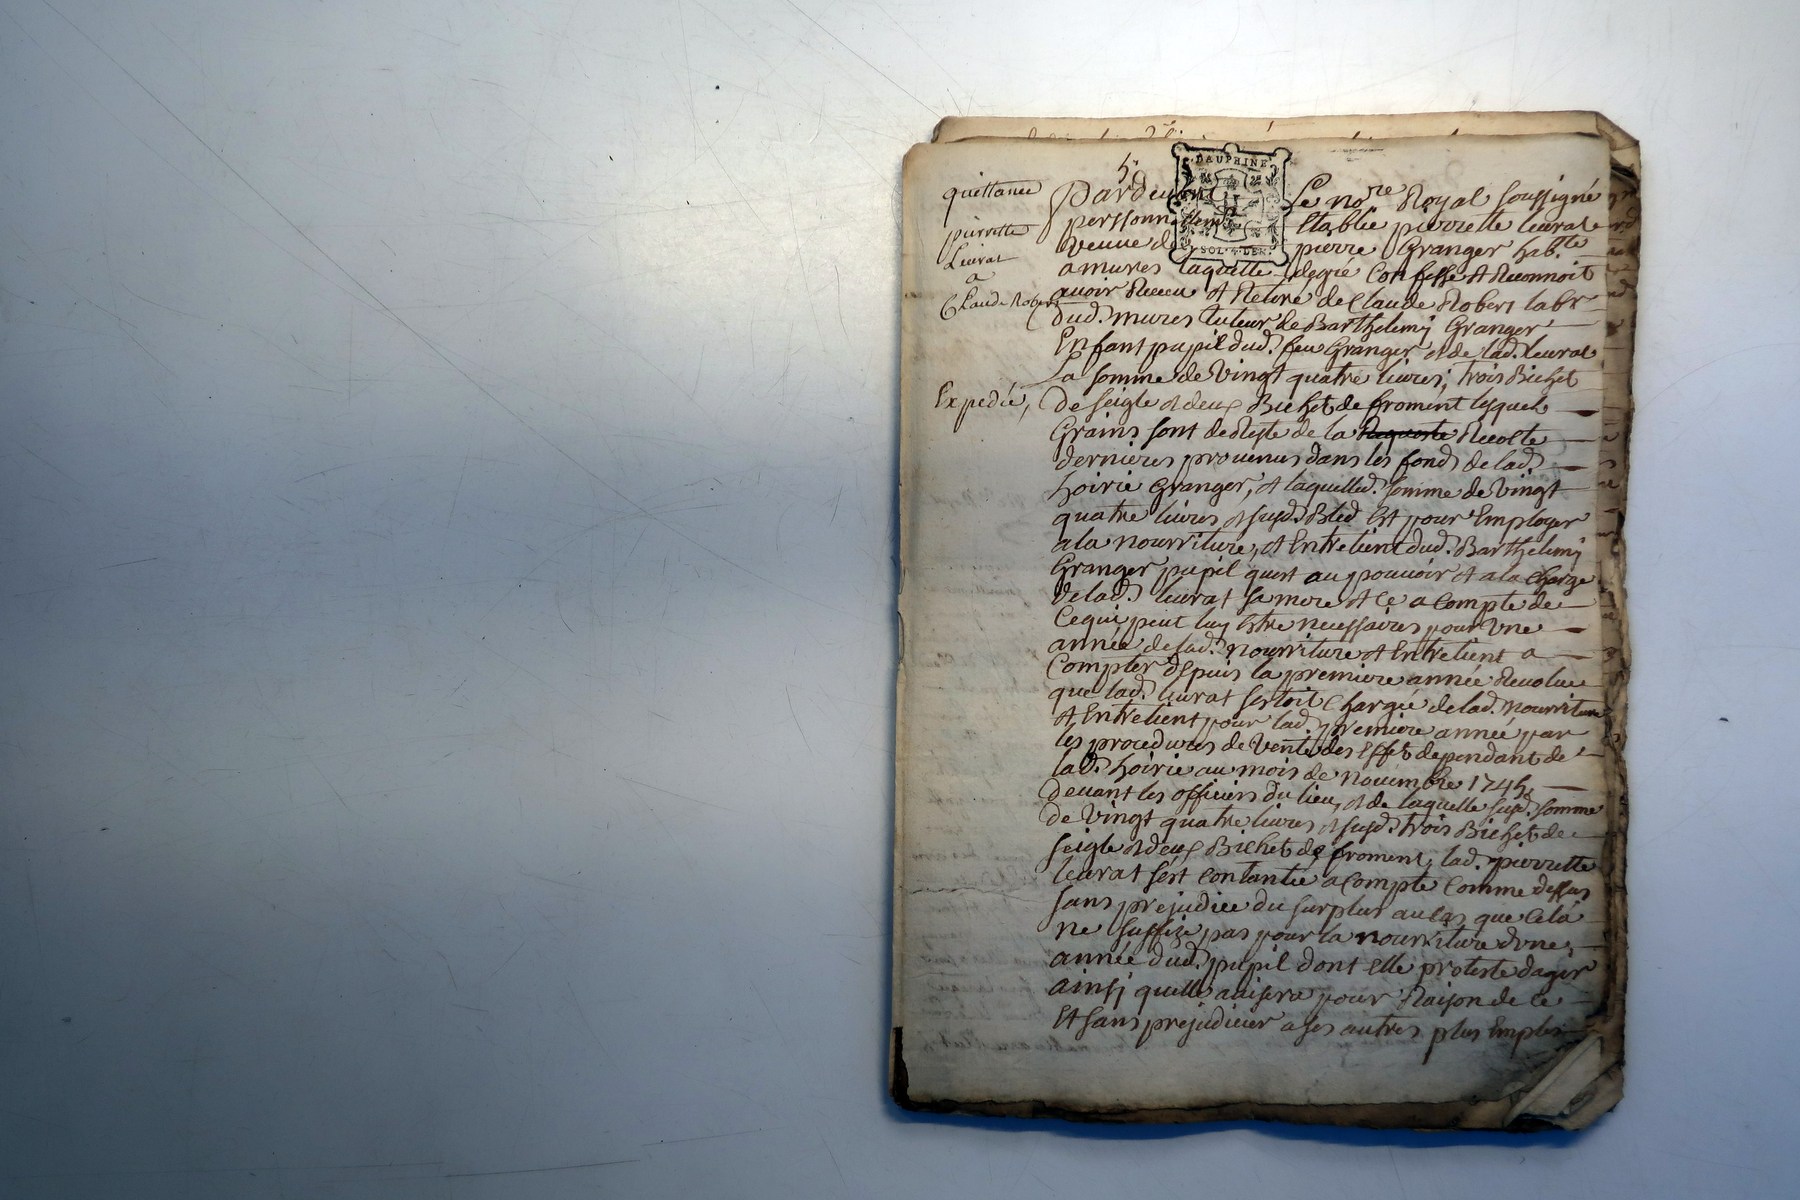 quittance
pierrette
Leurat
a
Claude Robert
Expedié,
DAUPHINE
SOL. 4. DEN.
Pardevant Le no.re Royal soussigné
personnellem.t Establie pierrette leurat
veuve de pierre Granger hab.te
a mures laquelle degré Confesse et Reconnoit
avoir Receu et Retiré de Claude Robert lab.r
dud. mures tuteur de Barthelemij Granger
Enfant pupil dud. feu Granger et de lad. leurat
La somme de vingt quatre livres, trois Bichet
de seigle et deux Bichet de froment lesquels
Grains sont de Reste de la Recolte
dernieres provenus dans les fonds de lad.
hoirie Granger, et laquelled. somme de vingt
quatre livres et susd. Bled Est pour Employer
a la nourriture, et Entretient dud. Barthelemij
Granger pupil quest au pouvoir et a la Charge
de lad. leurat sa mere et Ce a Compte de
Ce qui peut luy Estre necessaires pour une
année de lad. nourriture et Entretient a
Compter depuis la premiere année Revolue
que lad. leurat sestoit Chargée de lad. nourriture
et Entretient pour lad. premiere année par
les procedures de vente des Effets dependant de
lad. hoirie au mois de novembre 1745
devant les officiers du lieu, et de laquelle susd. somme
de vingt quatre livres et susd. trois Bichet de
seigle et deux Bichet de froment, lad. pierrette
leurat sest Contantée a Compte Comme dessus
sans prejudice du surplus au Cas que Cela
ne suffize pas pour la nourriture dune
année dud. pupil dont Elle proteste dagir
ainsj quelle avisera pour Raison de Ce
Et sans prejudicier a ses autres plus Amples